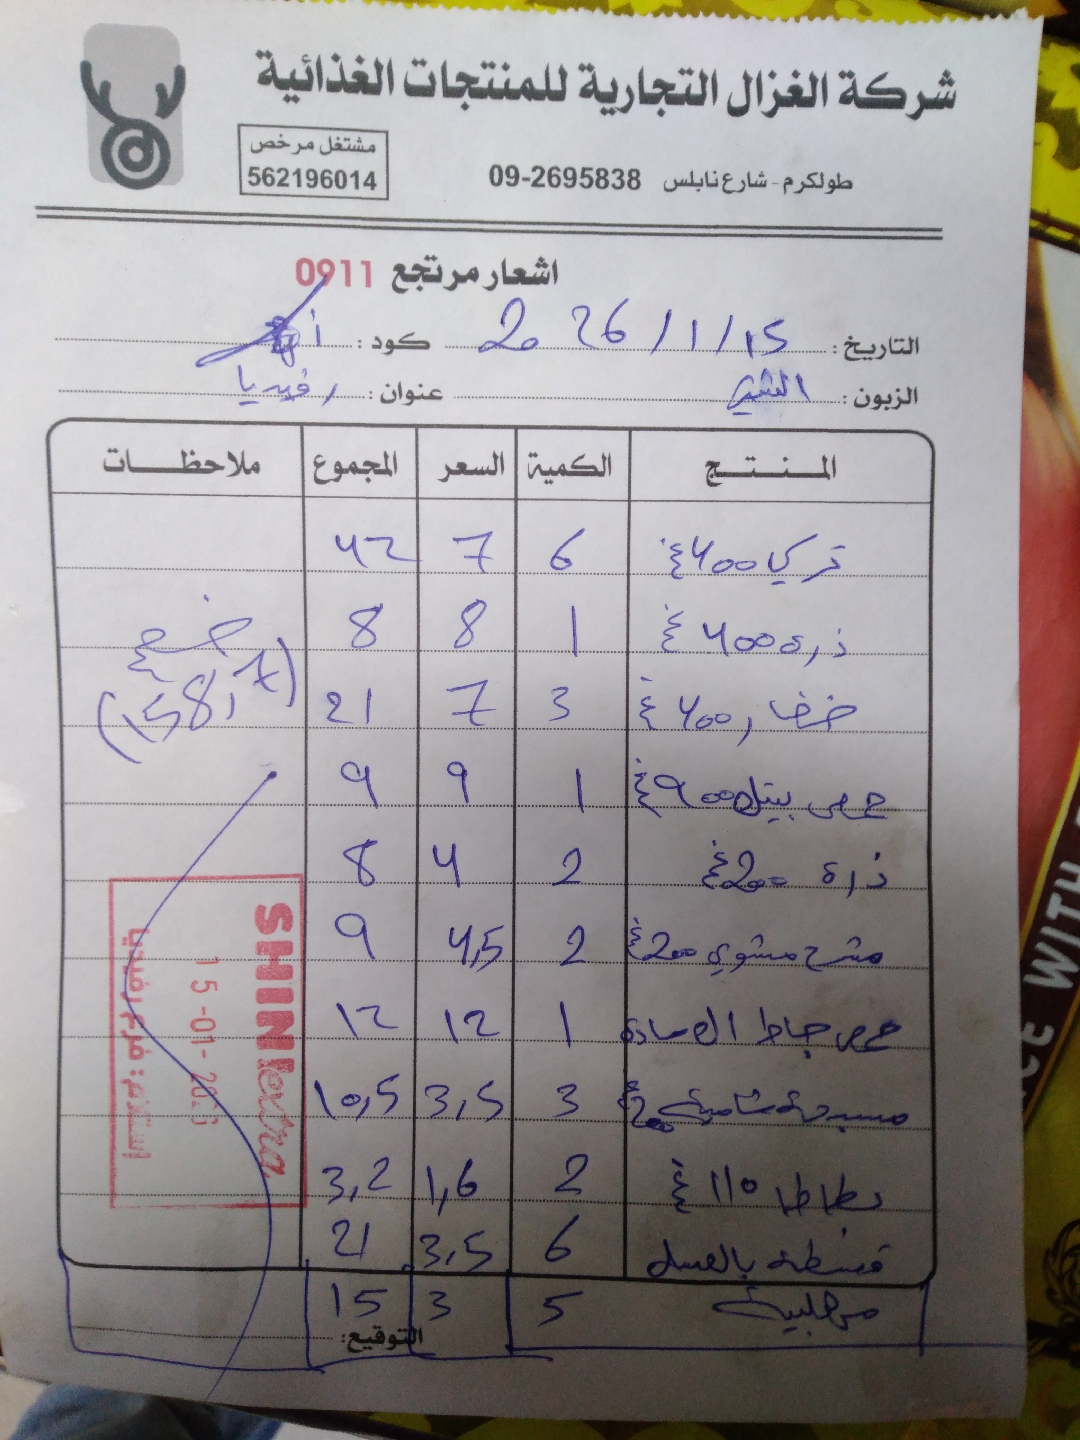 شركة الغزال التجارية للمنتجات الغذائية
طولكرم - شارع نابلس 09-2695838
مشتغل مرخص
562196014
اشعار مرتجع 0911
التاريخ: 2026/1/15 كود:
الزبون: عنوان: رفيديا
المنتج الكمية السعر المجموع ملاحظات
تركي 400غ 6 7 42
ذره 400غ 1 8 8
خضار 400غ 3 7 21
(158,7)
حمص بيتل 900غ 1 9 9
ذرة 200غ 2 4 8
مشوي 200غ 2 4,5 9
حمص جاط السادة 1 12 12
مسبحة شامية 200غ 3 3,5 10,5
بطاطا 110غ 2 1,6 3,2
قشطة بالعسل 6 3,5 21
مهلبية 5 3 15
التوقيع:
SHINI extra
15-01-2026
إستلام: فرع رفيديا